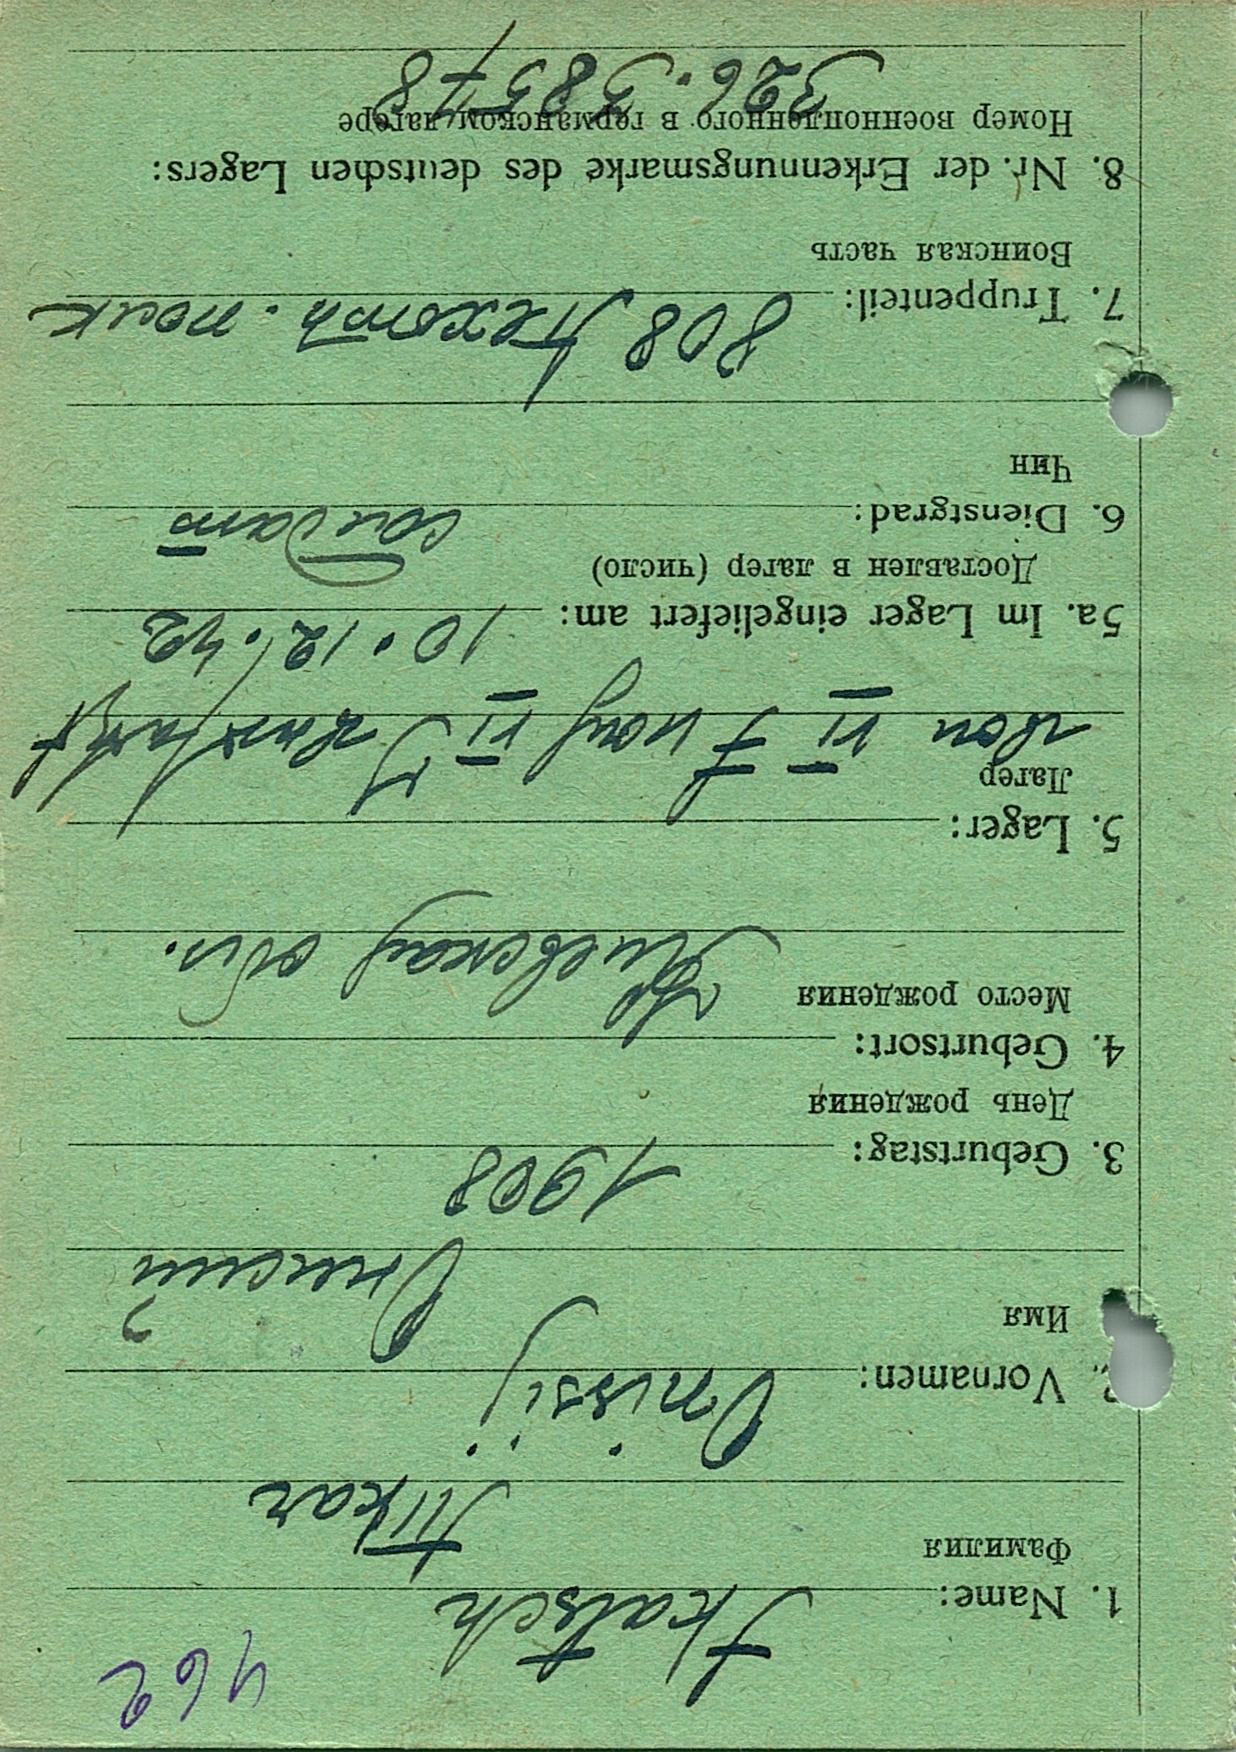 462
1. Name: Tkatsch
Фамилия Ткач
2. Vornamen: Onissij
Имя Онисий
3. Geburtstag: 1908
День рождения
4. Geburtsort:
Место рождения Киевская обл.
5. Lager:
Лагер von VI F nach VI J
5a. Im Lager eingeliefert am: 10.12.42
Доставлен в лагер (число)
6. Dienstgrad: солдат
Чин
7. Truppenteil: 808 пехотн. полк
Воинская часть
8. Nr. der Erkennungsmarke des deutschen Lagers:
Номер военнопленного в германском лагере
326. 38578